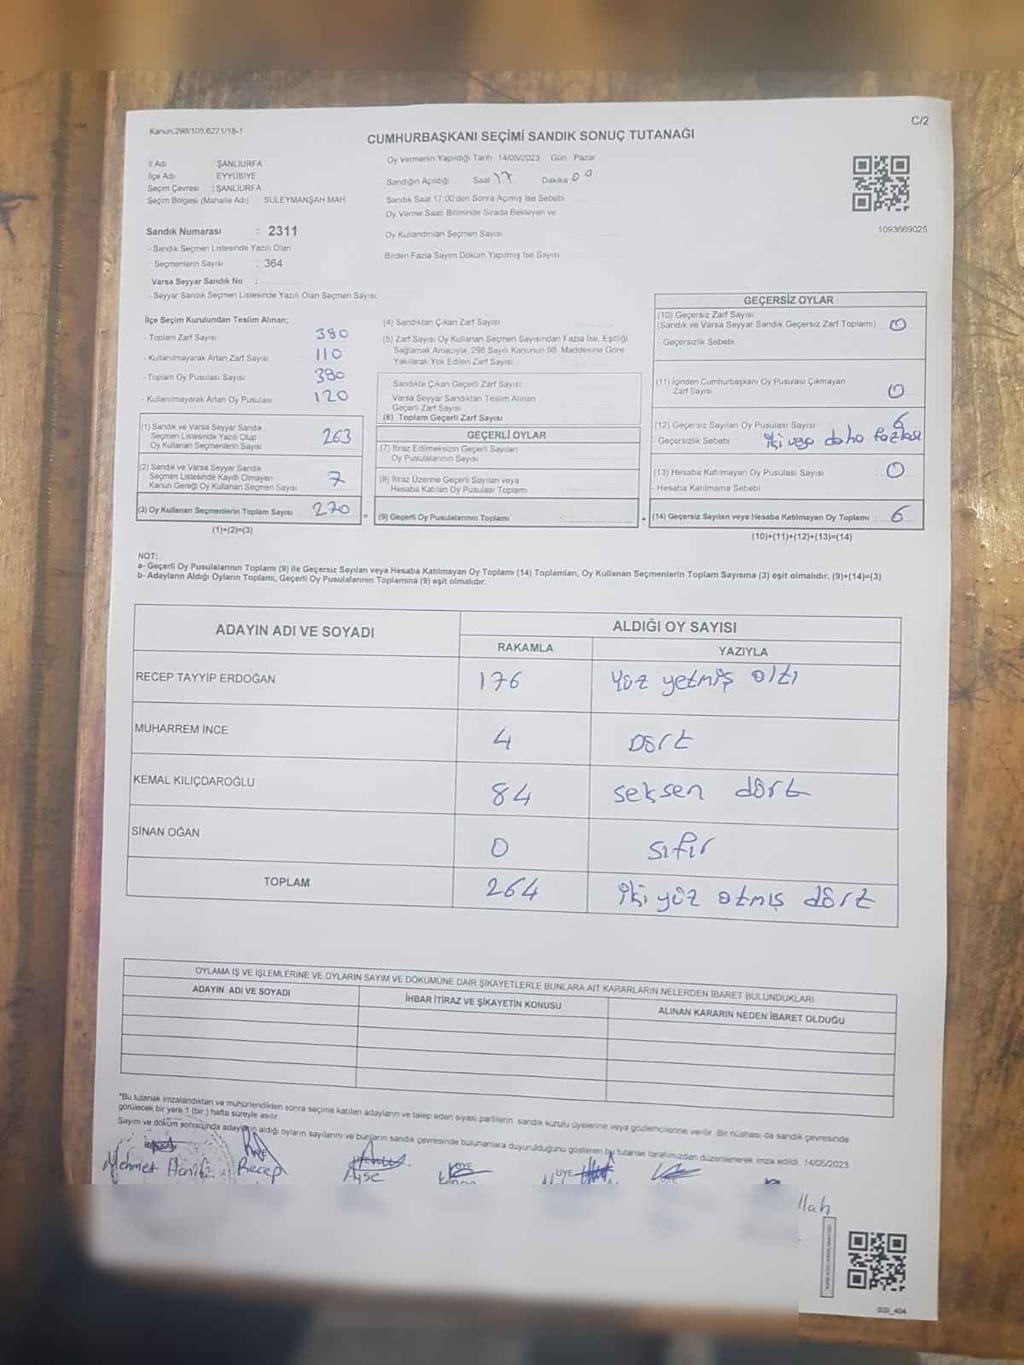 Kanun,298/105,6271/18-1
C/2
CUMHURBAŞKANI SEÇİMİ SANDIK SONUÇ TUTANAĞI
İl Adı : ŞANLIURFA
İlçe Adı : EYYÜBİYE
Seçim Çevresi : ŞANLIURFA
Seçim Bölgesi (Mahalle Adı) SÜLEYMANŞAH MAH
Sandık Numarası : 2311
- Sandık Seçmen Listesinde Yazılı Olan
Seçmenlerin Sayısı : 364
Varsa Seyyar Sandık No :
- Seyyar Sandık Seçmen Listesinde Yazılı Olan Seçmen Sayısı:
Oy Vermenin Yapıldığı Tarih 14/05/2023 Gün : Pazar
Sandığın Açıldığı Saat 17 Dakika 00
Sandık Saat 17:00'den Sonra Açılmış İse Sebebi
Oy Verme Saati Bitiminde Sırada Bekleyen ve
Oy Kullandırılan Seçmen Sayısı
Birden Fazla Sayım Döküm Yapılmış İse Sayısı
1093669025
İlçe Seçim Kurulundan Teslim Alınan;
- Toplam Zarf Sayısı 380
- Kullanılmayarak Artan Zarf Sayısı 110
- Toplam Oy Pusulası Sayısı 390
- Kullanılmayarak Artan Oy Pusulası 120
(1) Sandık ve Varsa Seyyar Sandık
Seçmen Listesinde Yazılı Olup
Oy Kullanan Seçmenlerin Sayısı 263
(2) Sandık ve Varsa Seyyar Sandık
Seçmen Listesinde Kayıtlı Olmayan
Kanun Gereği Oy Kullanan Seçmen Sayısı 7
(3) Oy Kullanan Seçmenlerin Toplam Sayısı 270
(1)+(2)=(3)
(4) Sandıktan Çıkan Zarf Sayısı
(5) Zarf Sayısı Oy Kullanan Seçmen Sayısından Fazla İse, Eşitliği
Sağlamak Amacıyla, 298 Sayılı Kanunun 98. Maddesine Göre
Yakılarak Yok Edilen Zarf Sayısı
Sandıkta Çıkan Geçerli Zarf Sayısı
Varsa Seyyar Sandıktan Teslim Alınan
Geçerli Zarf Sayısı
(6) Toplam Geçerli Zarf Sayısı
GEÇERLİ OYLAR
(7) İtiraz Edilmeksizin Geçerli Sayılan
Oy Pusulalarının Sayısı
(8) İtiraz Üzerine Geçerli Sayılan veya
Hesaba Katılan Oy Pusulası Toplamı
= (9) Geçerli Oy Pusulalarının Toplamı :
GEÇERSİZ OYLAR
(10) Geçersiz Zarf Sayısı
(Sandık ve Varsa Seyyar Sandık Geçersiz Zarf Toplamı) 0
- Geçersizlik Sebebi
(11) İçinden Cumhurbaşkanı Oy Pusulası Çıkmayan
Zarf Sayısı 0
(12) Geçersiz Sayılan Oy Pusulası Sayısı 6
- Geçersizlik Sebebi iki veya daha fazlası
(13) Hesaba Katılmayan Oy Pusulası Sayısı 0
- Hesaba Katılmama Sebebi
+ (14) Geçersiz Sayılan veya Hesaba Katılmayan Oy Toplamı : 6
(10)+(11)+(12)+(13)=(14)
NOT:
a- Geçerli Oy Pusulalarının Toplamı (9) ile Geçersiz Sayılan veya Hesaba Katılmayan Oy Toplamı (14) Toplamları, Oy Kullanan Seçmenlerin Toplam Sayısına (3) eşit olmalıdır. (9)+(14)=(3)
b- Adayların Aldığı Oyların Toplamı, Geçerli Oy Pusulalarının Toplamına (9) eşit olmalıdır.
ADAYIN ADI VE SOYADI
ALDIĞI OY SAYISI
RAKAMLA YAZIYLA
RECEP TAYYİP ERDOĞAN 176 Yüz yetmiş altı
MUHARREM İNCE 4 Dört
KEMAL KILIÇDAROĞLU 84 seksen dört
SİNAN OĞAN 0 sıfır
TOPLAM 264 iki yüz atmış dört
OYLAMA İŞ VE İŞLEMLERİNE VE OYLARIN SAYIM VE DÖKÜMÜNE DAİR ŞİKAYETLERLE BUNLARA AİT KARARLARIN NELERDEN İBARET BULUNDUKLARI
ADAYIN ADI VE SOYADI İHBAR İTİRAZ VE ŞİKAYETİN KONUSU ALINAN KARARIN NEDEN İBARET OLDUĞU
*Bu tutanak imzalandıktan ve mühürlendikten sonra seçime katılan adayların ve talep eden siyasi partilerin sandık kurulu üyelerine veya gözlemcilerine verilir. Bir nüshası da sandık çevresinde
görülecek bir yere 1 (bir) hafta süreyle asılır.
Sayım ve döküm sonucunda adayların aldığı oyların sayılarını ve bunların sandık çevresinde bulunanlara duyurulduğunu gösteren bu tutanak tarafımızdan düzenlenerek imza edildi. 14/05/2023
Mehmet Hanifi Recep Ayşe ÜYE ÜYE
llah